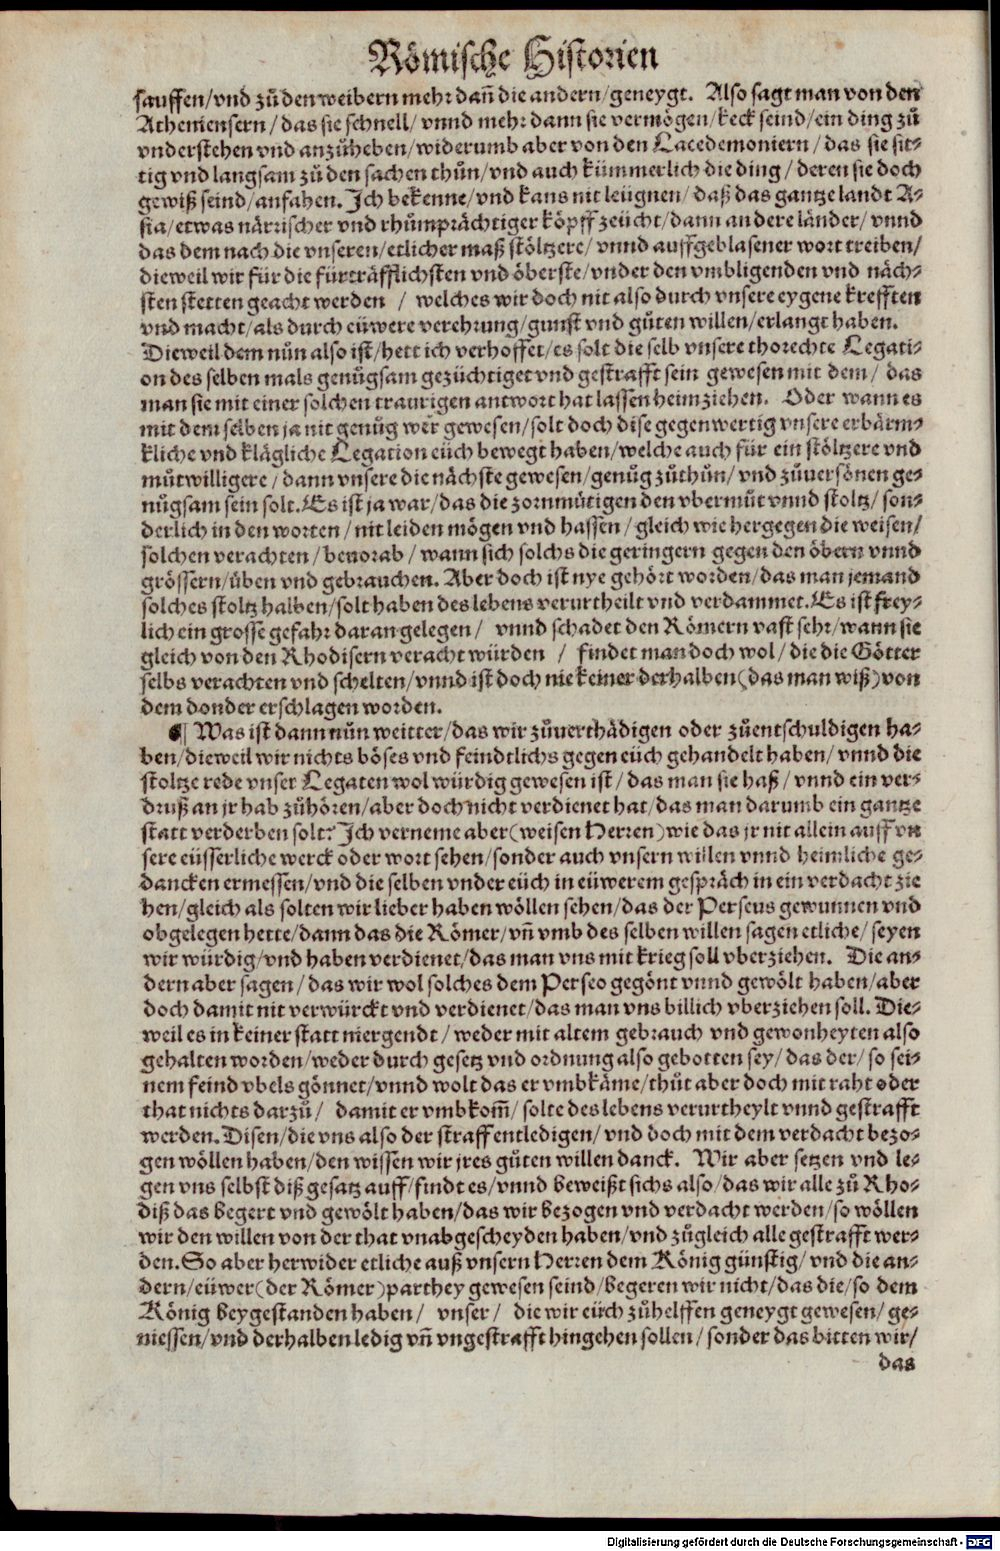 Römische Historien
sauffen/vnd zů den weibern mehr dañ die andern/geneygt. Also sagt man von den
Atheniensern/das sie schnell/vnnd mehr dann sie vermögen/keck seind/ein ding zů
vnderstehen vnd anzůheben/widerumb aber von den Lacedemoniern/das sie sit-
tig vnd langsam zů den sachen thůn/vnd auch kümmerlich die ding/deren sie doch
gewiß seind/anfahen. Ich bekenne/vnd kans nit leügnen/daß das gantze landt A-
sia/etwas närrischer vnd rhůmprächtiger köpff zeücht/dann andere länder/vnnd
das dem nach die vnseren/etlicher maß stöltzere/vnnd auffgeblasener wort treiben/
dieweil wir für die fürträfflichsten vnd öberste/vnder den vmbligenden vnd näch-
sten stetten geacht werden / welches wir doch nit also durch vnsere eygene krefften
vnd macht/als durch eüwere verehrung/gunst vnd gůten willen/erlangt haben.
Dieweil dem nůn also ist/hett ich verhoffet/es solt die selb vnsere thorechte Legati-
on des selben mals genůgsam gezüchtiget vnd gestrafft sein gewesen mit dem/ das
man sie mit einer solchen traurigen antwort hat lassen heimziehen. Oder wann es
mit dem selben ja nit genůg wer gewesen/solt doch dise gegenwertig vnsere erbärm-
kliche vnd klägliche Legation eüch bewegt haben/welche auch für ein stöltzere vnd
můtwilligere/dann vnsere die nächste gewesen/genůg zůthůn/vnd zůuersönen ge-
nůgsam sein solt. Es ist ja war/das die zornmütigen den vbermůt vnnd stoltz/son-
derlich in den worten/nit leiden mögen vnd hassen/gleich wie hergegen die weisen/
solchen verachten/beuorab/wann sich solchs die geringern gegen den öbern vnnd
grössern/üben vnd gebrauchen. Aber doch ist nye gehört worden/das man jemand
solches stoltz halben/solt haben des lebens verurtheilt vnd verdammet. Es ist frey-
lich ein grosse gefahr daran gelegen/ vnnd schadet den Römern vast sehr/wann sie
gleich von den Rhodisern veracht würden / findet man doch wol/die die Götter
selbs verachten vnd schelten/vnnd ist doch nie keiner derhalben(das man wiß)von
dem donder erschlagen worden.
¶ Was ist dann nůn weitter/das wir zůuerthädigen oder zůentschuldigen ha-
ben/dieweil wir nichts böses vnd feindtlichs gegen eüch gehandelt haben/vnnd die
stoltze rede vnser Legaten wol würdig gewesen ist/das man sie haß/vnnd ein ver-
druß an jr hab zůhören/aber doch nicht verdienet hat/das man darumb ein gantze
statt verderben solt? Ich verneme aber(weisen Herren)wie das jr nit allein auff vn
sere eüsserliche werck oder wort sehen/sonder auch vnsern willen vnnd heimliche ge-
dancken ermessen/vnd die selben vnder eüch in eüwerem gespräch in ein verdacht zie
hen/gleich als solten wir lieber haben wöllen sehen/das der Perseus gewunnen vnd
obgelegen hette/dann das die Römer/vñ vmb des selben willen sagen etliche/seyen
wir würdig/vnd haben verdienet/das man vns mit krieg soll vberziehen. Die an-
dern aber sagen/das wir wol solches dem Perseo gegönt vnnd gewölt haben/aber
doch damit nit verwürckt vnd verdienet/das man vns billich vberziehen soll. Die-
weil es in keiner statt niergendt/weder mit altem gebrauch vnd gewonheyten also
gehalten worden/weder durch gesetz vnd ordnung also gebotten sey/das der/so sei-
nem feind vbels gönnet/vnnd wolt das er vmbkäme/thůt aber doch mit raht oder
that nichts darzů/ damit er vmbkom̃/solte des lebens verurtheylt vnnd gestrafft
werden. Disen/die vns also der straff entledigen/vnd doch mit dem verdacht bezo-
gen wöllen haben/den wissen wir jres gůten willen danck. Wir aber setzen vnd le-
gen vns selbst diß gesatz auff/findt es/vnnd beweißt sichs also/das wir alle zů Rho-
diß das begert vnd gewölt haben/das wir bezogen vnd verdacht werden/so wöllen
wir den willen von der that vnabgescheyden haben/vnd zůgleich alle gestrafft wer-
den. So aber herwider etliche auß vnsern Herren dem König günstig/vnd die an-
dern/eüwer(der Römer)parthey gewesen seind/begeren wir nicht/das die/so dem
König beygestanden haben/ vnser/ die wir eüch zůhelffen geneygt gewesen/ge-
niessen/vnd derhalben ledig vñ vngestrafft hingehen sollen/sonder das bitten wir/
das
Digitalisierung gefördert durch die Deutsche Forschungsgemeinschaft - DFG